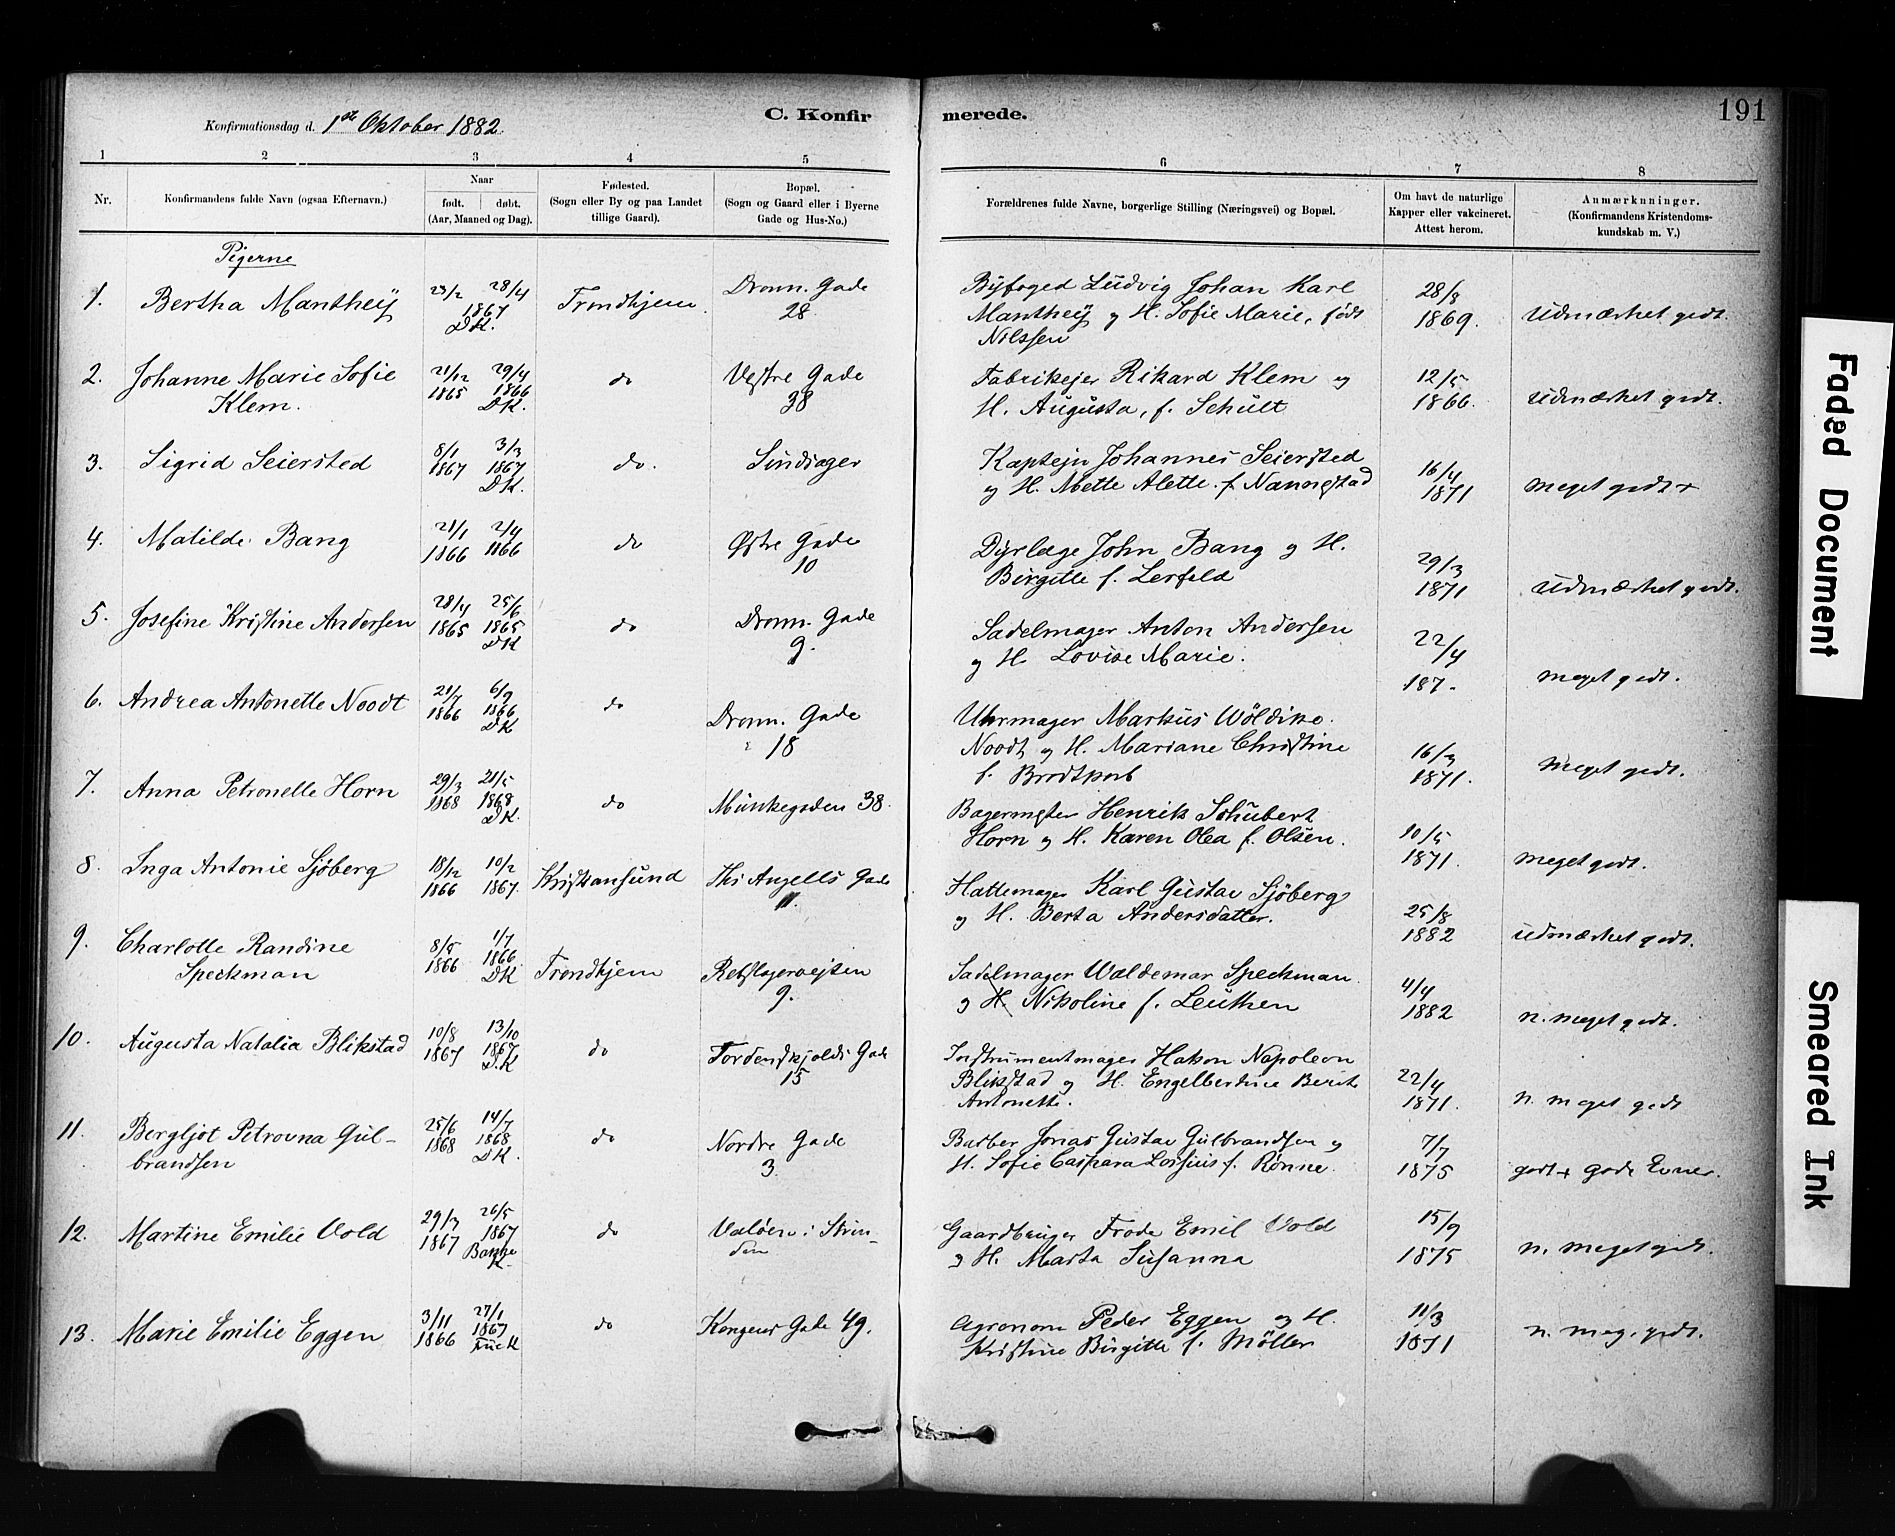 Konfirmationsdag d. 1ste Oktober 1882.
C. Konfirmerede.
191
1 2 3 4 5 6 7 8
Nr.
Konfirmandens fulde Navn (ogsaa Efternavn.)
Naar
født. døbt.
(Aar, Maaned og Dag).
Fødested.
(Sogn eller By og paa Landet
tillige Gaard).
Bopæl.
(Sogn og Gaard eller i Byerne
Gade og Hus-No.)
Forældrenes fulde Navne, borgerlige Stilling (Næringsvei) og Bopæl.
Om havt de naturlige
Kapper eller vakcineret.
Attest herom.
Anmærkninger.
(Konfirmandens Kristendoms-
kundskab m. V.)
Pigerne
1. Bertha Manthey 23/2 28/4 1867 DK. Trondhjem. Dronn. Gade 28
Byfoged Ludvig Johan Karl
Manthey og H. Sofie Marie, født
Nilssen
28/8 1869. Udmærket godt.
2. Johanne Marie Sofie
Klem. 21/12 1865 29/4 1866 DK. do Vestre Gade 38
Fabrikejer Rikard Klem og
H. Augusta, f. Schult
12/5 1866. Udmærket godt.
3. Sigrid Seiersted 8/1 1867 3/3 1867 DK. do.
Kaptejn Johannes Seiersted
og H. Mette Alette f. Nannestad
16/4 1871 meget godt +
4. Matilde Bang 21/1 1866 2/4 1866 do Østre Gade 10
Dyrlæge John Bang og H.
Birgitte f. Lerfeld
29/3 1871 Udmærket godt.
5. Josefine Kristine Andersen 28/4 1865 25/6 1865 DK do Dronn. Gade 9.
Sadelmager Anton Andersen
og H. Lovise Marie.
22/4 187. meget godt.
6. Andrea Antonette Noodt 21/7 1866 6/9 1866 DK do Dronn. Gade 18
Uhrmager Markus Wöldike
Noodt og H. Mariane Christine
f. Brodtkorb
16/3 1871. meget godt.
7. Anna Petronelle Horn 29/3 1868 21/5 1868 DK. do Munkegaden 38.
Bagermester Henrik Schubert
Horn og H. Karen Olea f. Olsen.
10/5 1871. meget godt.
8. Inga Antonie Sjöberg 18/12 1866 10/2 1867. Kristiansund Ths Angells Gade 11.
Hattemager Karl Gustav Sjöberg
og H. Berta Andersdatter.
25/8 1882 udmærket godt.
9. Charlotte Randine
Speckman 8/5 1866 1/7 1866 DK Trondhjem Rebslagervejten 9.
Sadelmager Waldemar Speckman
og H. Nikoline f. Leuthen
4/4 1882 n. meget godt.
10. Augusta Natalia Blikstad 10/8 1867 13/10 1867 D.K do Tordenskjolds Gade 15
Instrumentmager Hakon Napoleon
Blikstad og H. Engelberdine Berit
Antonette.
22/4 1871. n. meget godt
11. Bergljot Petrovna Gul-
brandsen 25/6 1868 14/7 1868 DK. do Nordre Gade 3.
Barber Jonas Gustav Gulbrandsen og
H. Sofie Caspara Lossius f. Rønne.
7/7 1875 godt + gode Evner.
12. Martine Emilie Vold 29/3 1867 26/5 1867 Bakke K. do Valøen i Strin-
den
Gaardbruger Frode Emil Vold
og H. Marta Susanna
15/9 1875 n. meget godt.
13. Marie Emilie Eggen 3/11 1866 27/1 1867 do Kongens Gade 49.
Agronom Peder Eggen og H.
Kristine Birgitte f. Möller
11/3 1871 n. meg. godt.
Faded Document
Smeared Ink